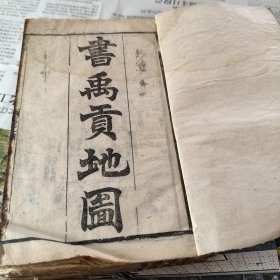 書禹貢地圖